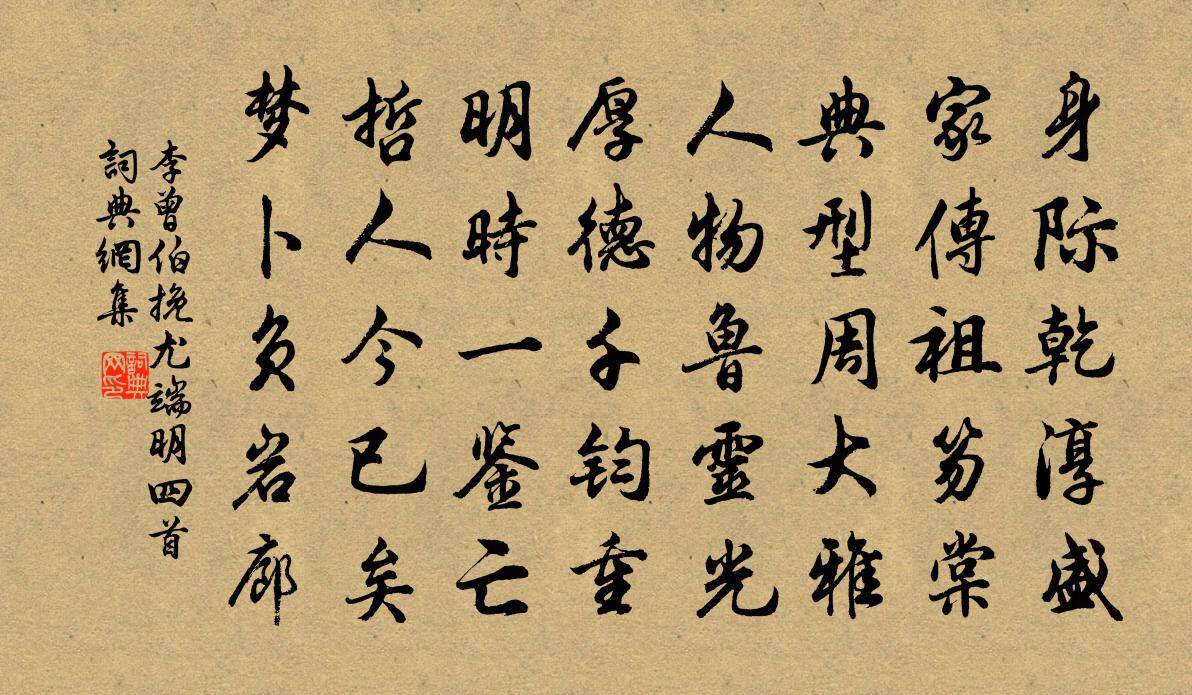 身际乾淳盛
家傳祖笏棠
典型周大雅
人物魯靈光
厚德千鈞重
明時一鉴亡
哲人今已矣
梦卜负岩廊
李曾伯挽尤端明四首
詞典網集
詞典网印